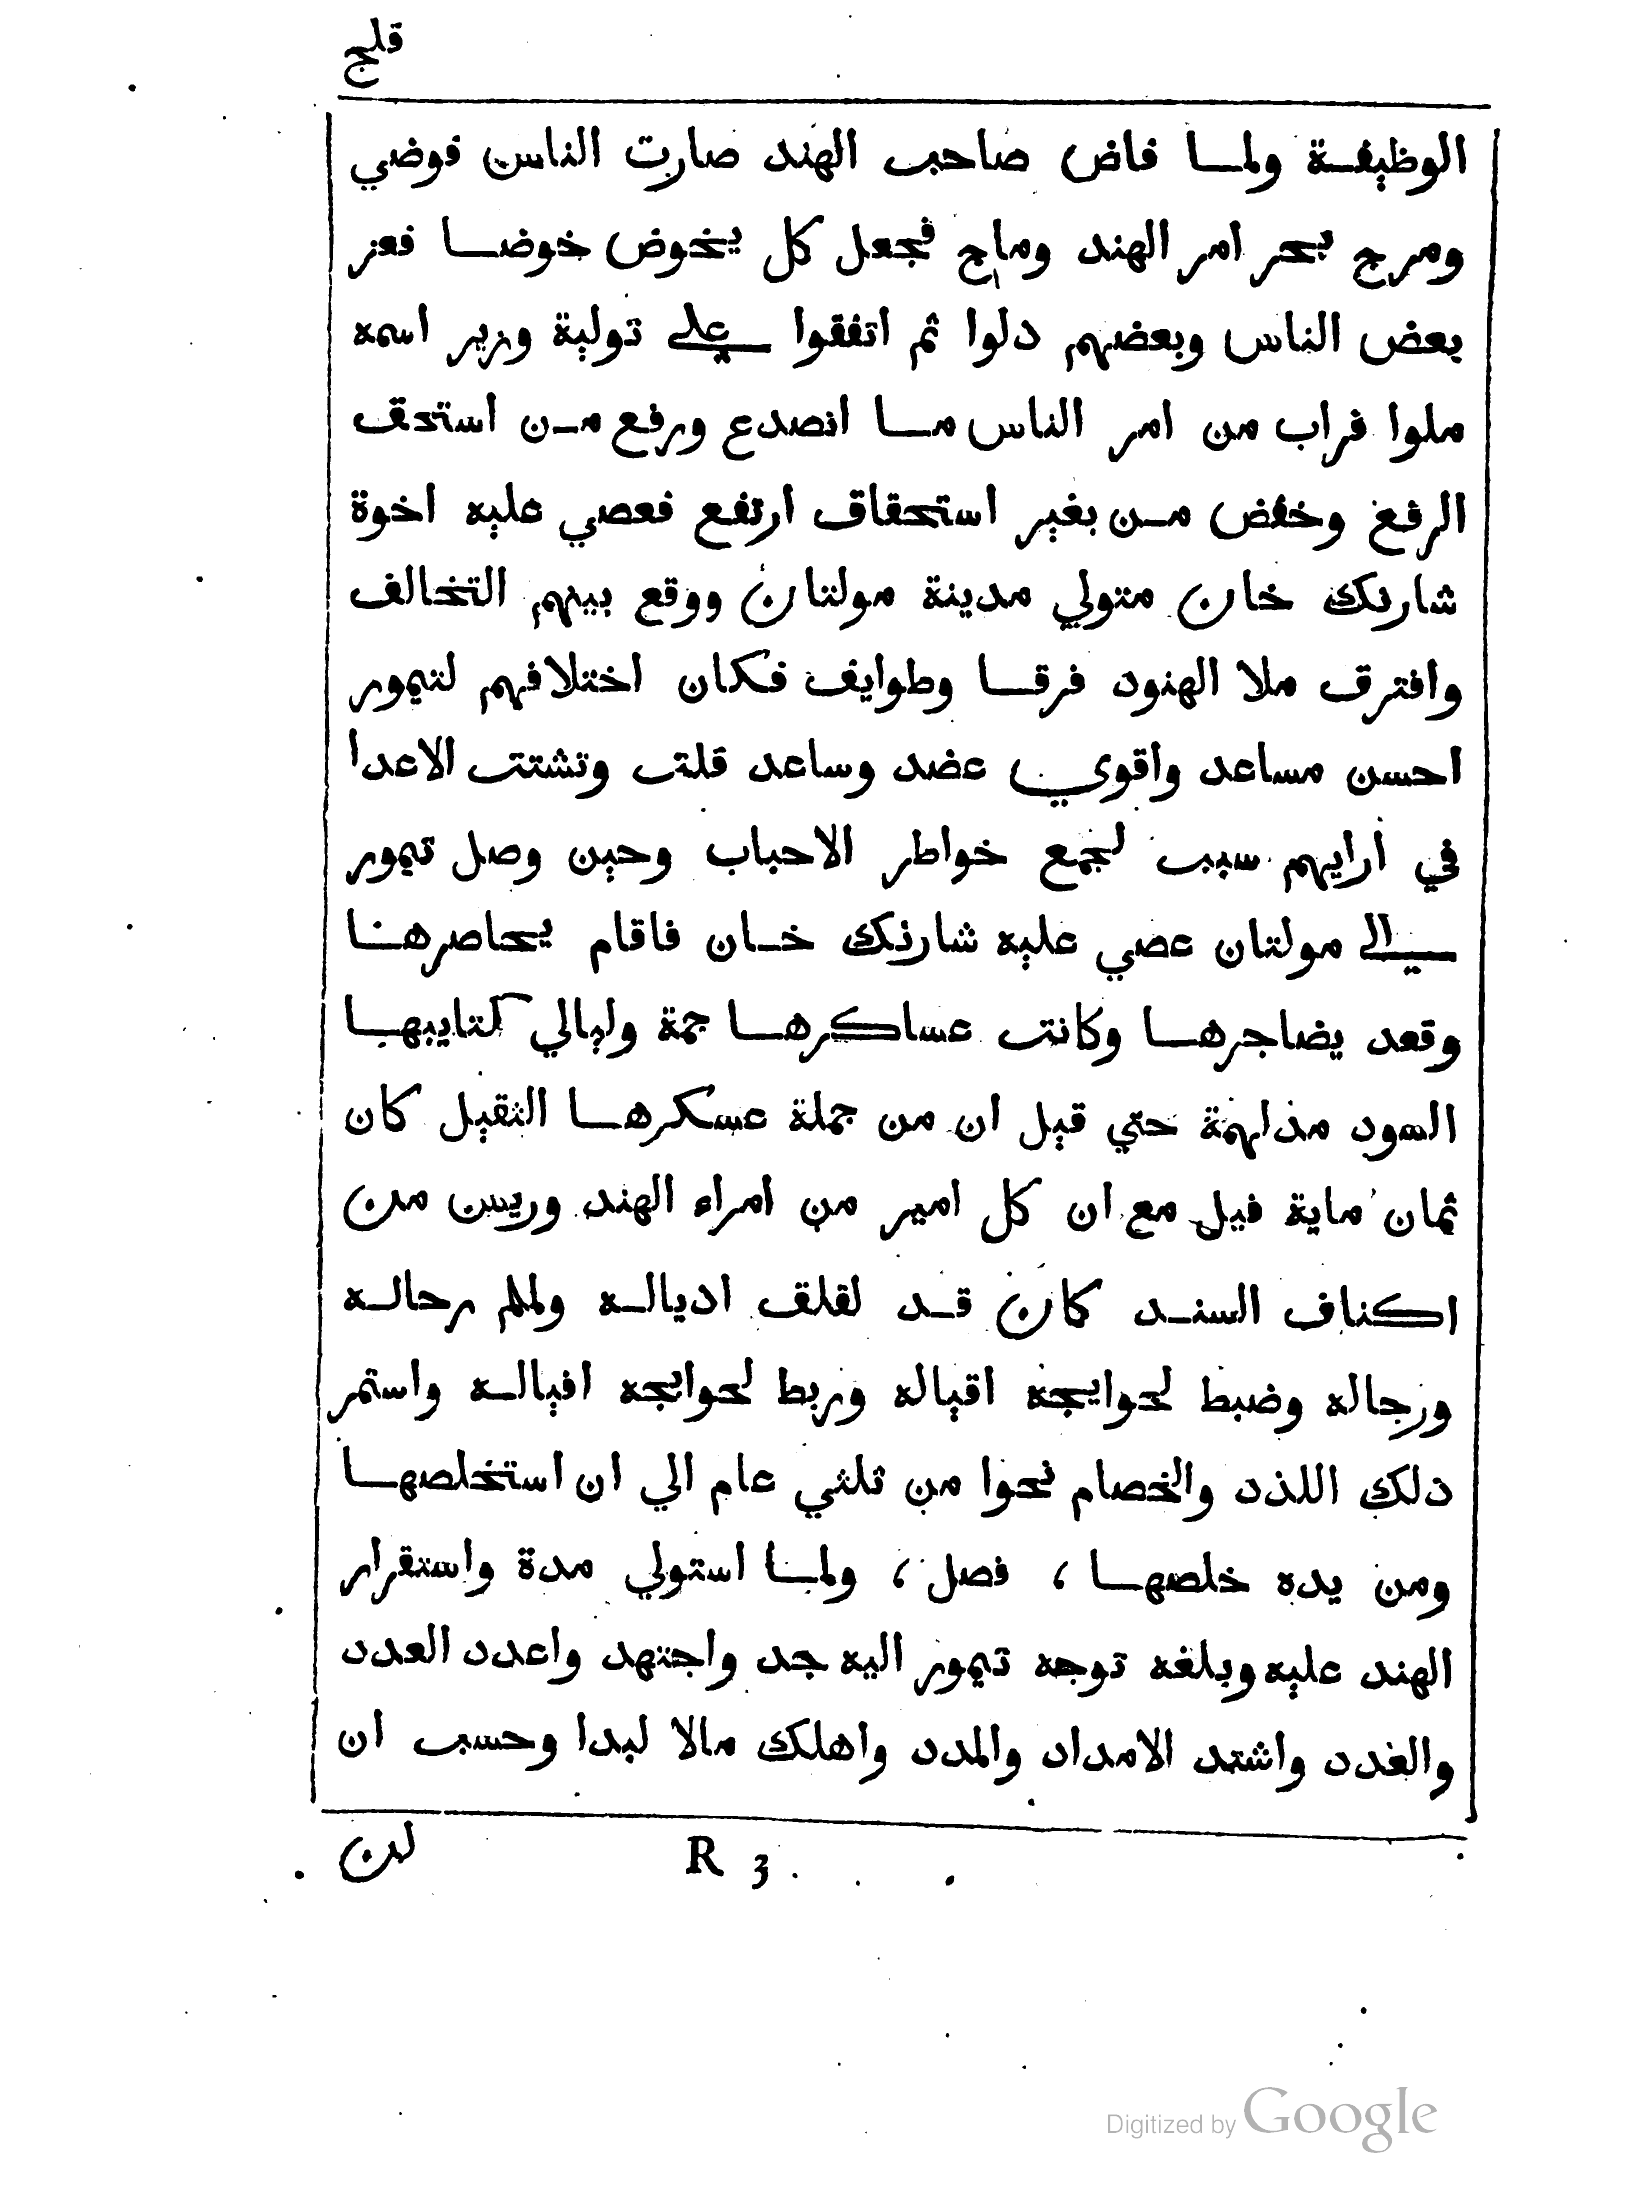 قلج
الوظيفة ولما فاض صاحب الهند صارت الناس فوضي
ومرج بحر امر الهند وماج فجعل كل يخوض خوضا فعز
بعض الناس وبعضهم دلوا ثم اتفقوا علي تولية وزير اسمه
ملوا فراب من امر الناس ما انصدع ورفع من استحق
الرفع وخفض من بغير استحقاق ارتفع فعصي عليه اخوة
شارنك خان متولي مدينة مولتان ووقع بينهم التخالف
وافترق ملا الهنود فرقا وطوايف فكان اختلافهم لتيمور
احسن مساعد واقوي عضد وساعد قلت وتشتت الاعدا
في ارايهم سبب لجمع خواطر الاحباب وحين وصل تيمور
الي مولتان عصي عليه شارنك خان فاقام يحاصرها
وقعد يضاجرها وكانت عساكرها جمة وليالي كتايبها
السود مدلهمة حتي قيل ان من جملة عسكرها الثقيل كان
ثمان ماية فيل مع ان كل امير من امراء الهند وريس من
اكناف السند كان قد لقلق ادياله ولملم رحاله
ورجاله وضبط لحوايجه اقياله وربط لحوائجه افياله واستمر
ذلك اللدد والخصام نحوا من ثلثي عام الي ان استخلصها
ومن يده خلصها ، فصل ، ولما استولي مدة واستقرار
الهند عليه وبلغه توجه تيمور اليه جد واجتهد واعدد العدد
والغدد واشتد الامداد والمدد واهلك مالا لبدا وحسب ان
R 3
لن
Digitized by Google